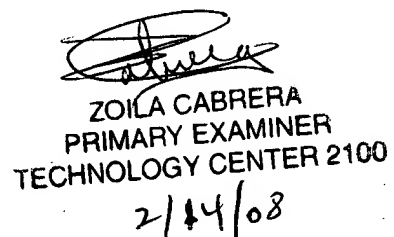 Cabrera
ZOILA CABRERA
PRIMARY EXAMINER
TECHNOLOGY CENTER 2100
2/14/08